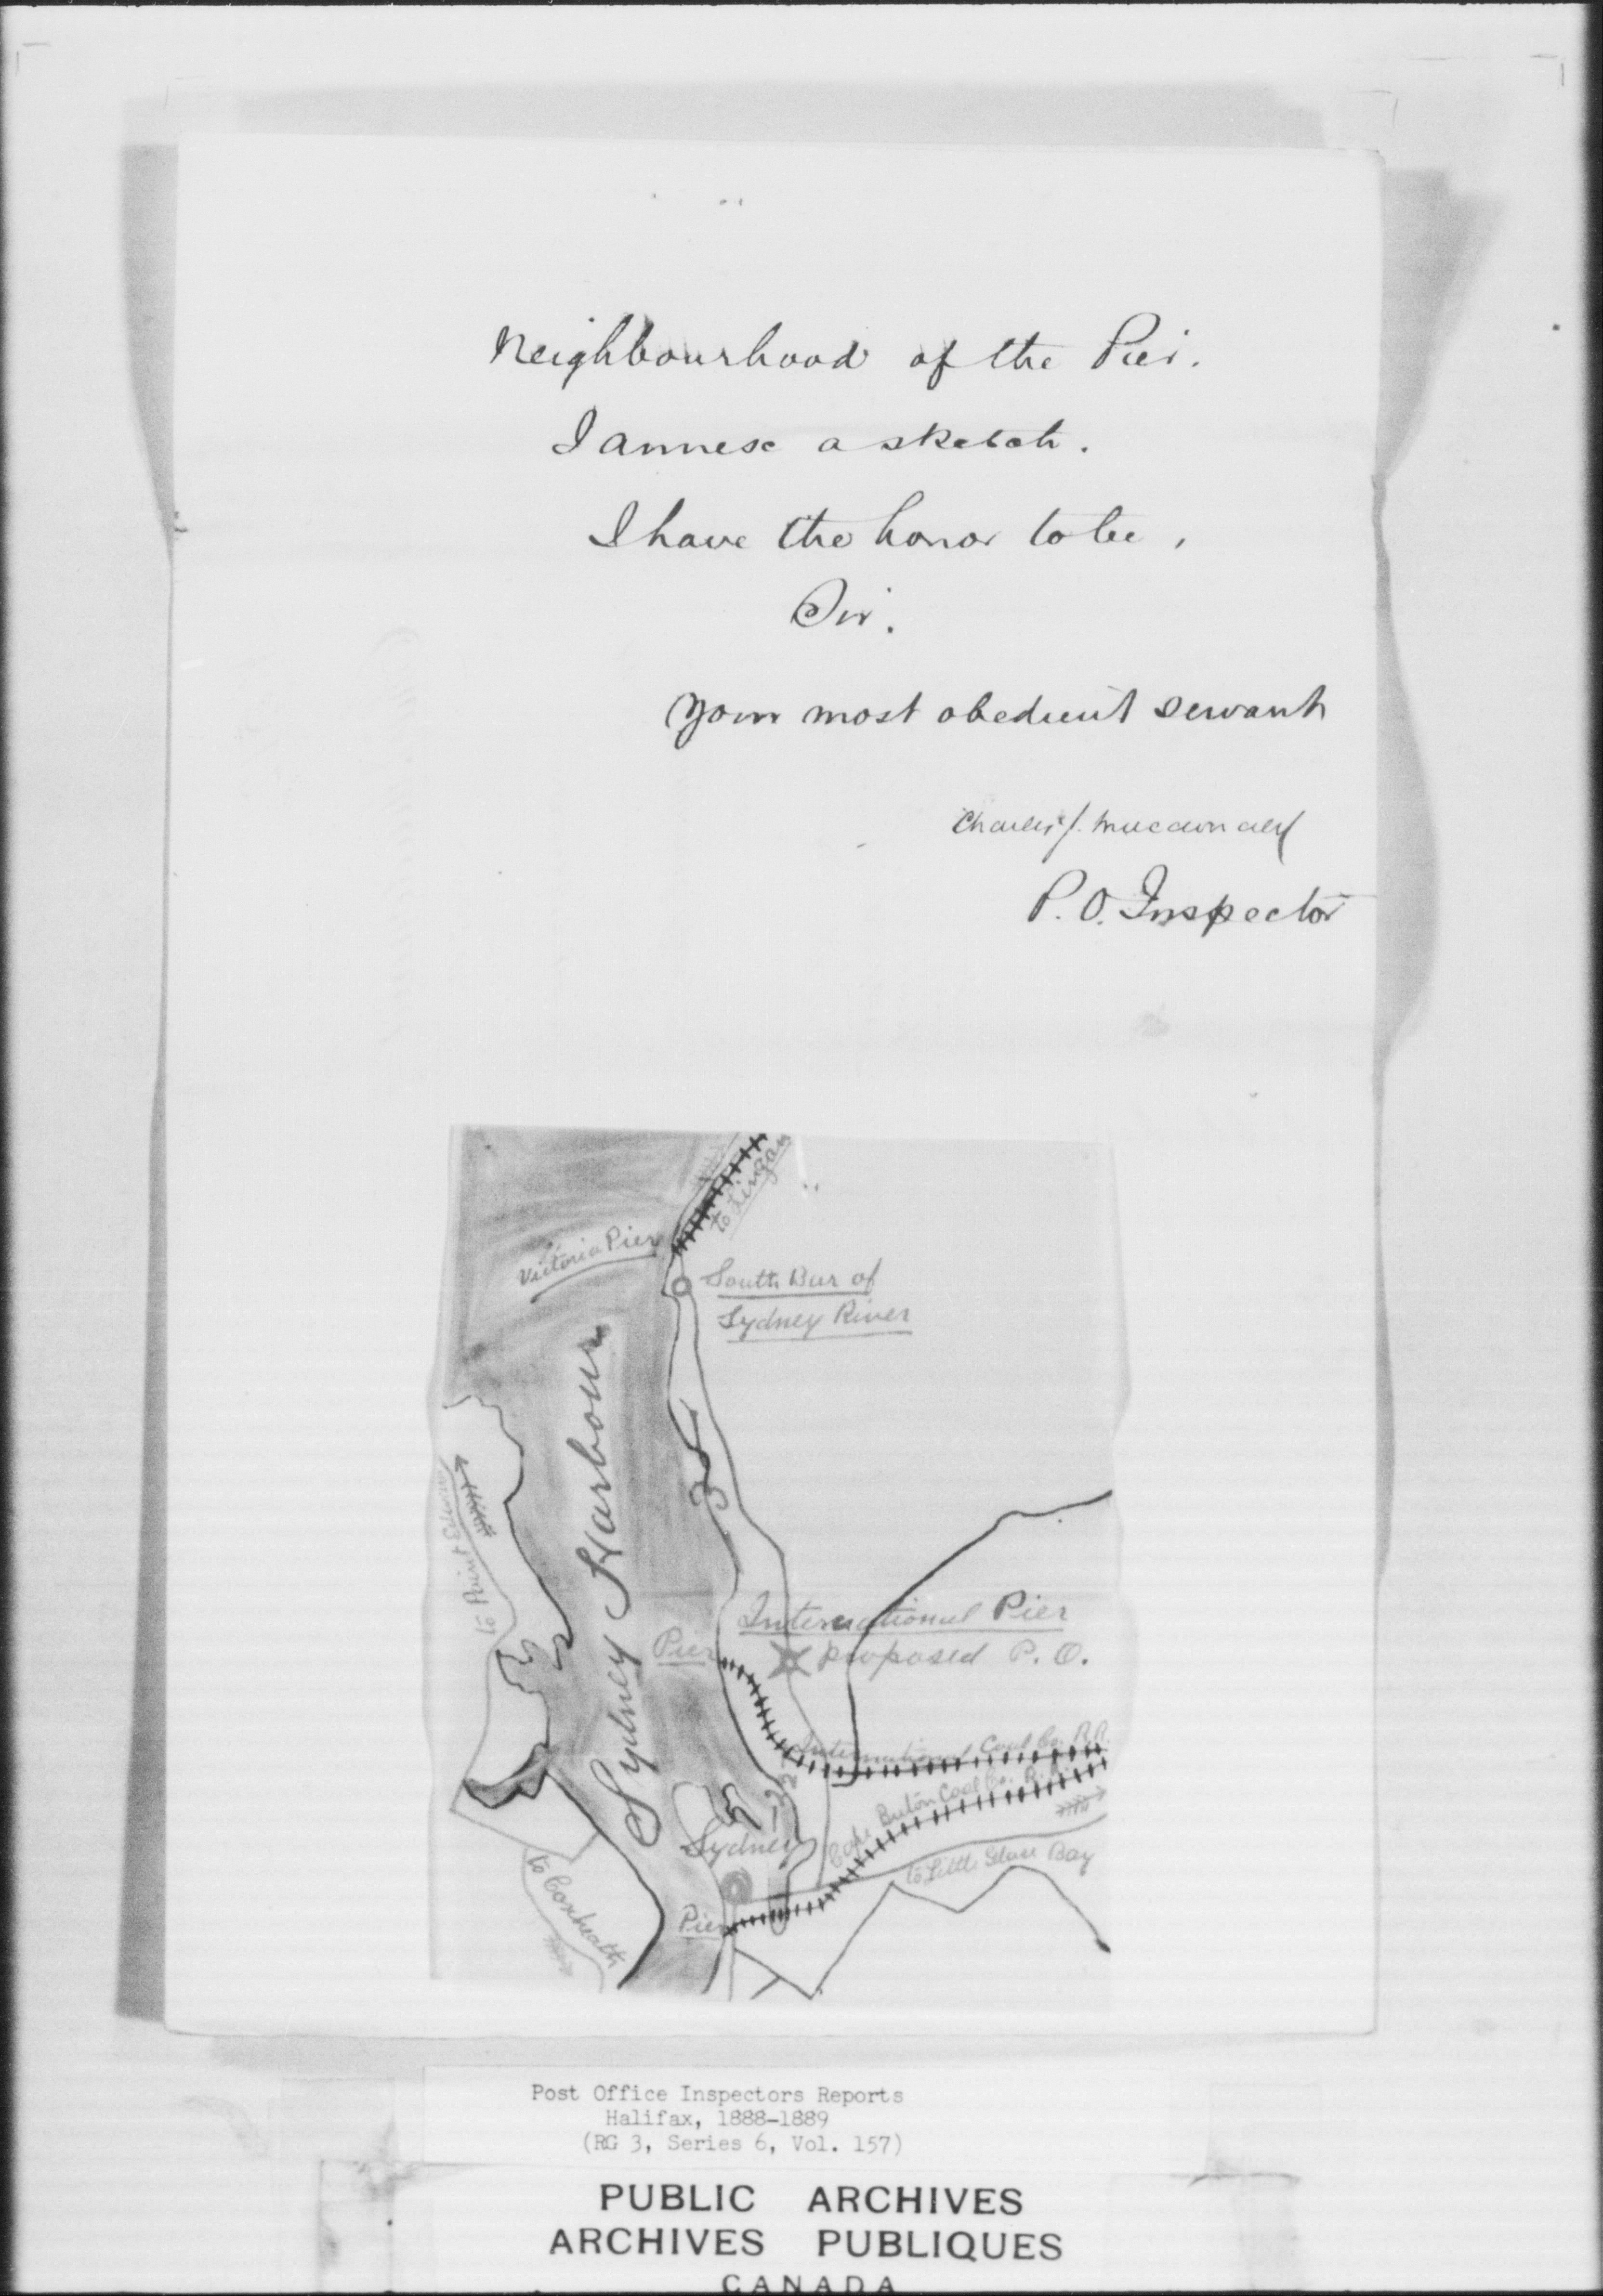 Neighbourhood of the Pier.
I annex a sketch.
I have the honor to be,
Sir.
Your most obedient servant
Charles J. Macdonald
P. O. Inspector
to Lingan
Victoria Pier
South Bar of
Sydney River
Sydney Harbour
to Point Edward
International Pier
Pier
proposed P. O.
International Coal Co. R.R.
Cape Breton Coal Co. R.R.
Sydney
to Little Glace Bay
to Coxheath
Pier
Post Office Inspectors Reports
Halifax, 1888-1889
(RG 3, Series 6, Vol. 157)
PUBLIC ARCHIVES
ARCHIVES PUBLIQUES
CANADA